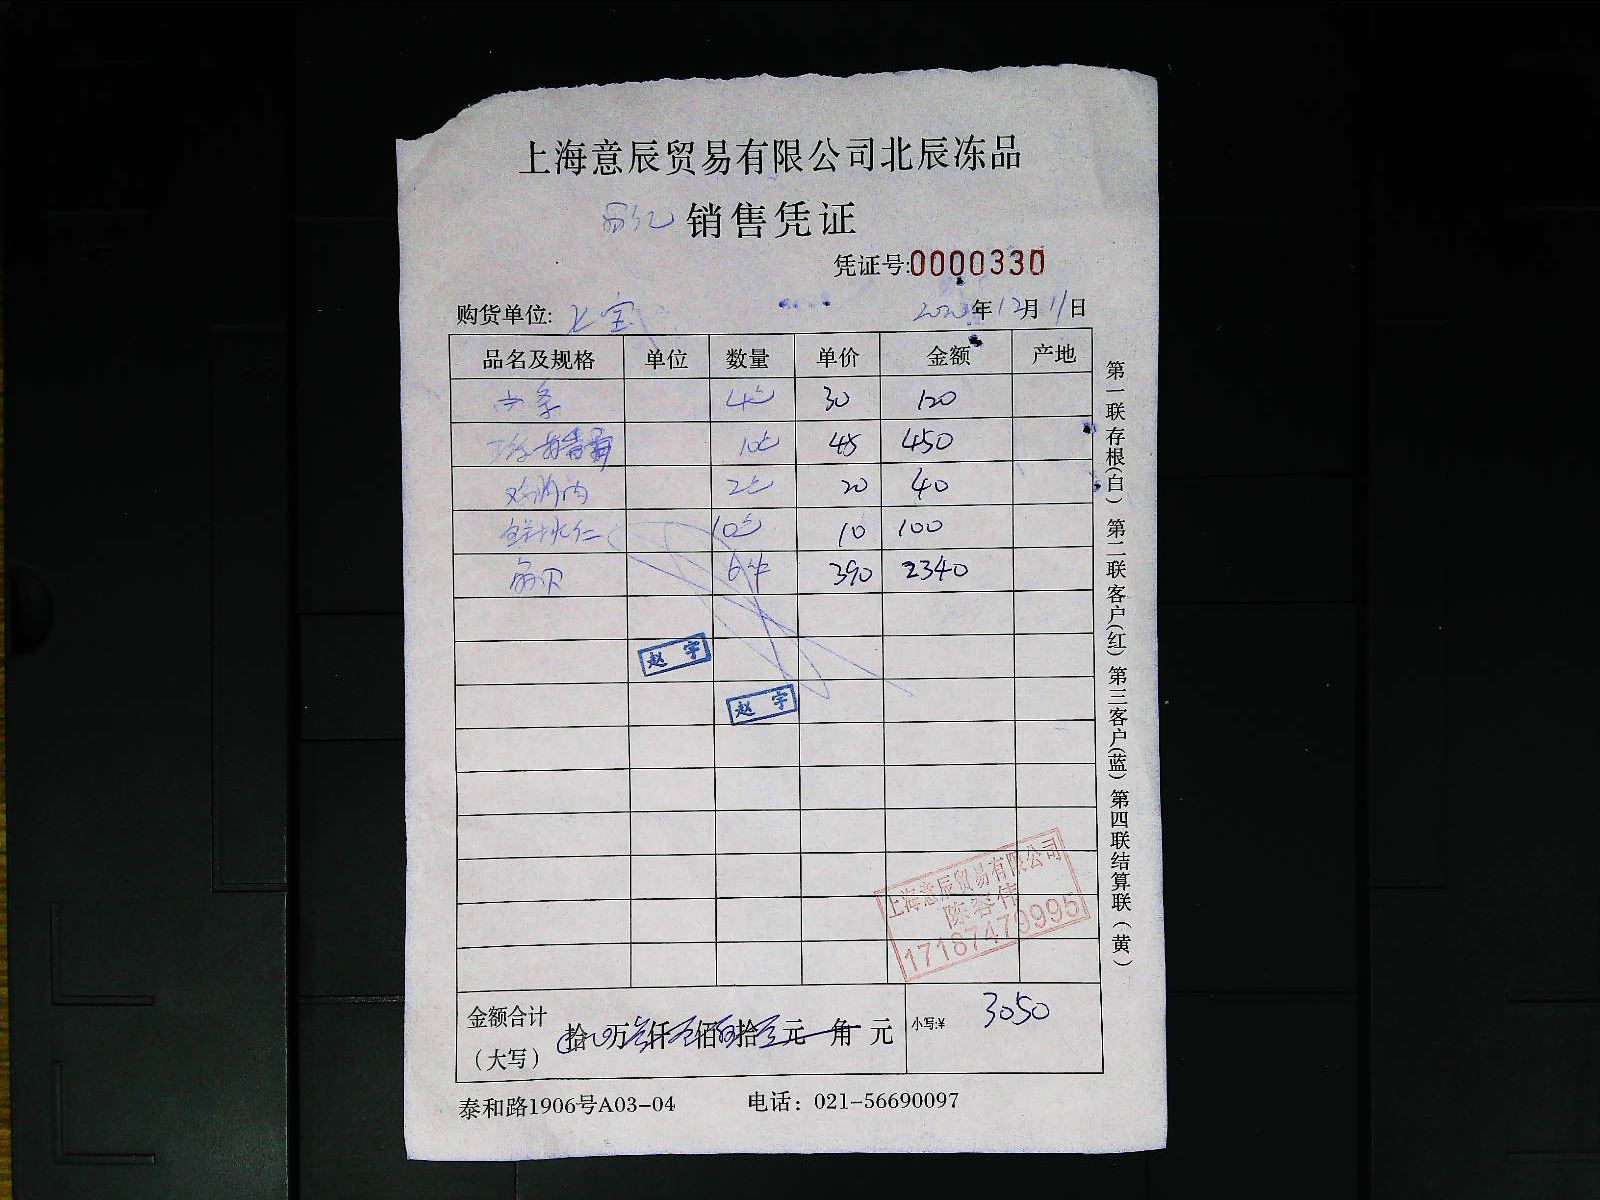 上海意辰贸易有限公司北辰冻品
销售凭证
凭证号:0000330
购货单位: 宝
2020年12月11日
品名及规格 单位 数量 单价 金额 产地
4包 30 120
10包 45 450
2包 20 40
10包 10 100
6件 390 2340
赵宇
赵宇
上海意辰贸易有限公司
陈容伟
17187479995
金额合计
(大写)
拾 万 仟 佰 拾 元 角 元
小写:¥ 3050
泰和路1906号A03-04 电话：021-56690097
第一联存根(白) 第二联客户(红) 第三客户(蓝) 第四联结算联(黄)